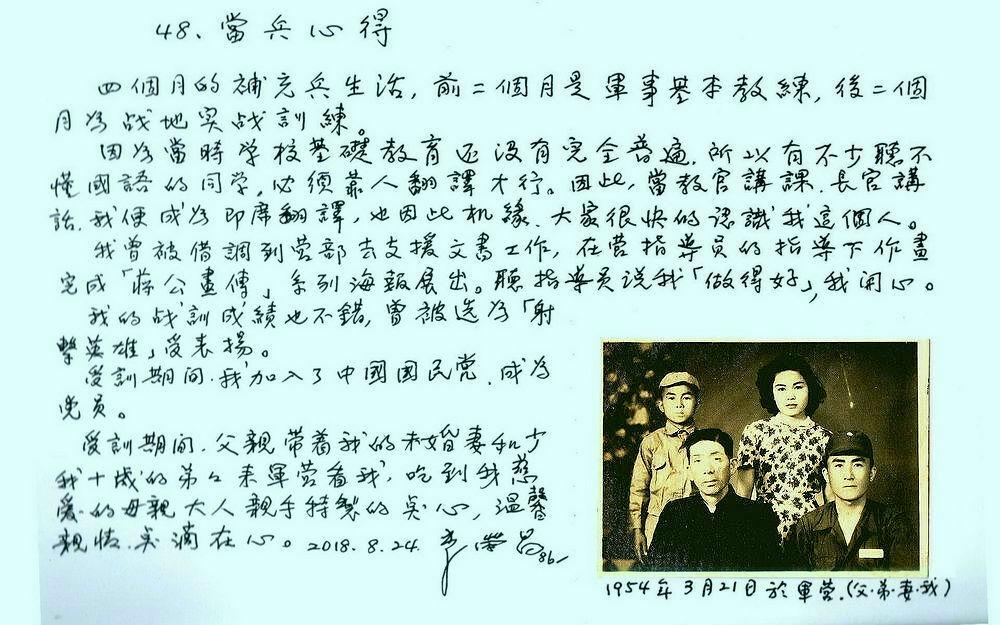 48、當兵心得
四個月的補充兵生活，前二個月是軍事基本教練，後二個
月为战地実战訓練。
因为當時学校基礎教育还没有完全普遍，所以有不少聽不
懂國語的同学，必須靠人翻譯才行。因此，當教官講課、長官講
話，我便成为即席翻譯，也因此机緣、大家很快的認識我這個人。
我曾被借調到营部去支援文書工作，在营指導員的指導下作畫
完成「蒋公畫傳」系列海報展出。聽指導员说我「做得好」，我開心。
我的战訓成績也不錯，曾被选为「射
擊英雄」受表揚。
受訓期间，我加入了中國國民党，成为
党员。
受訓期间，父親带着我的未婚妻和少
我十歲的弟々来軍营看我，吃到我慈
爱的母親大人親手特製的点心，溫馨
親情，点滴在心。2018.8.24. 李营昌 86
1954年3月21日於軍营.(父.弟.妻.我)